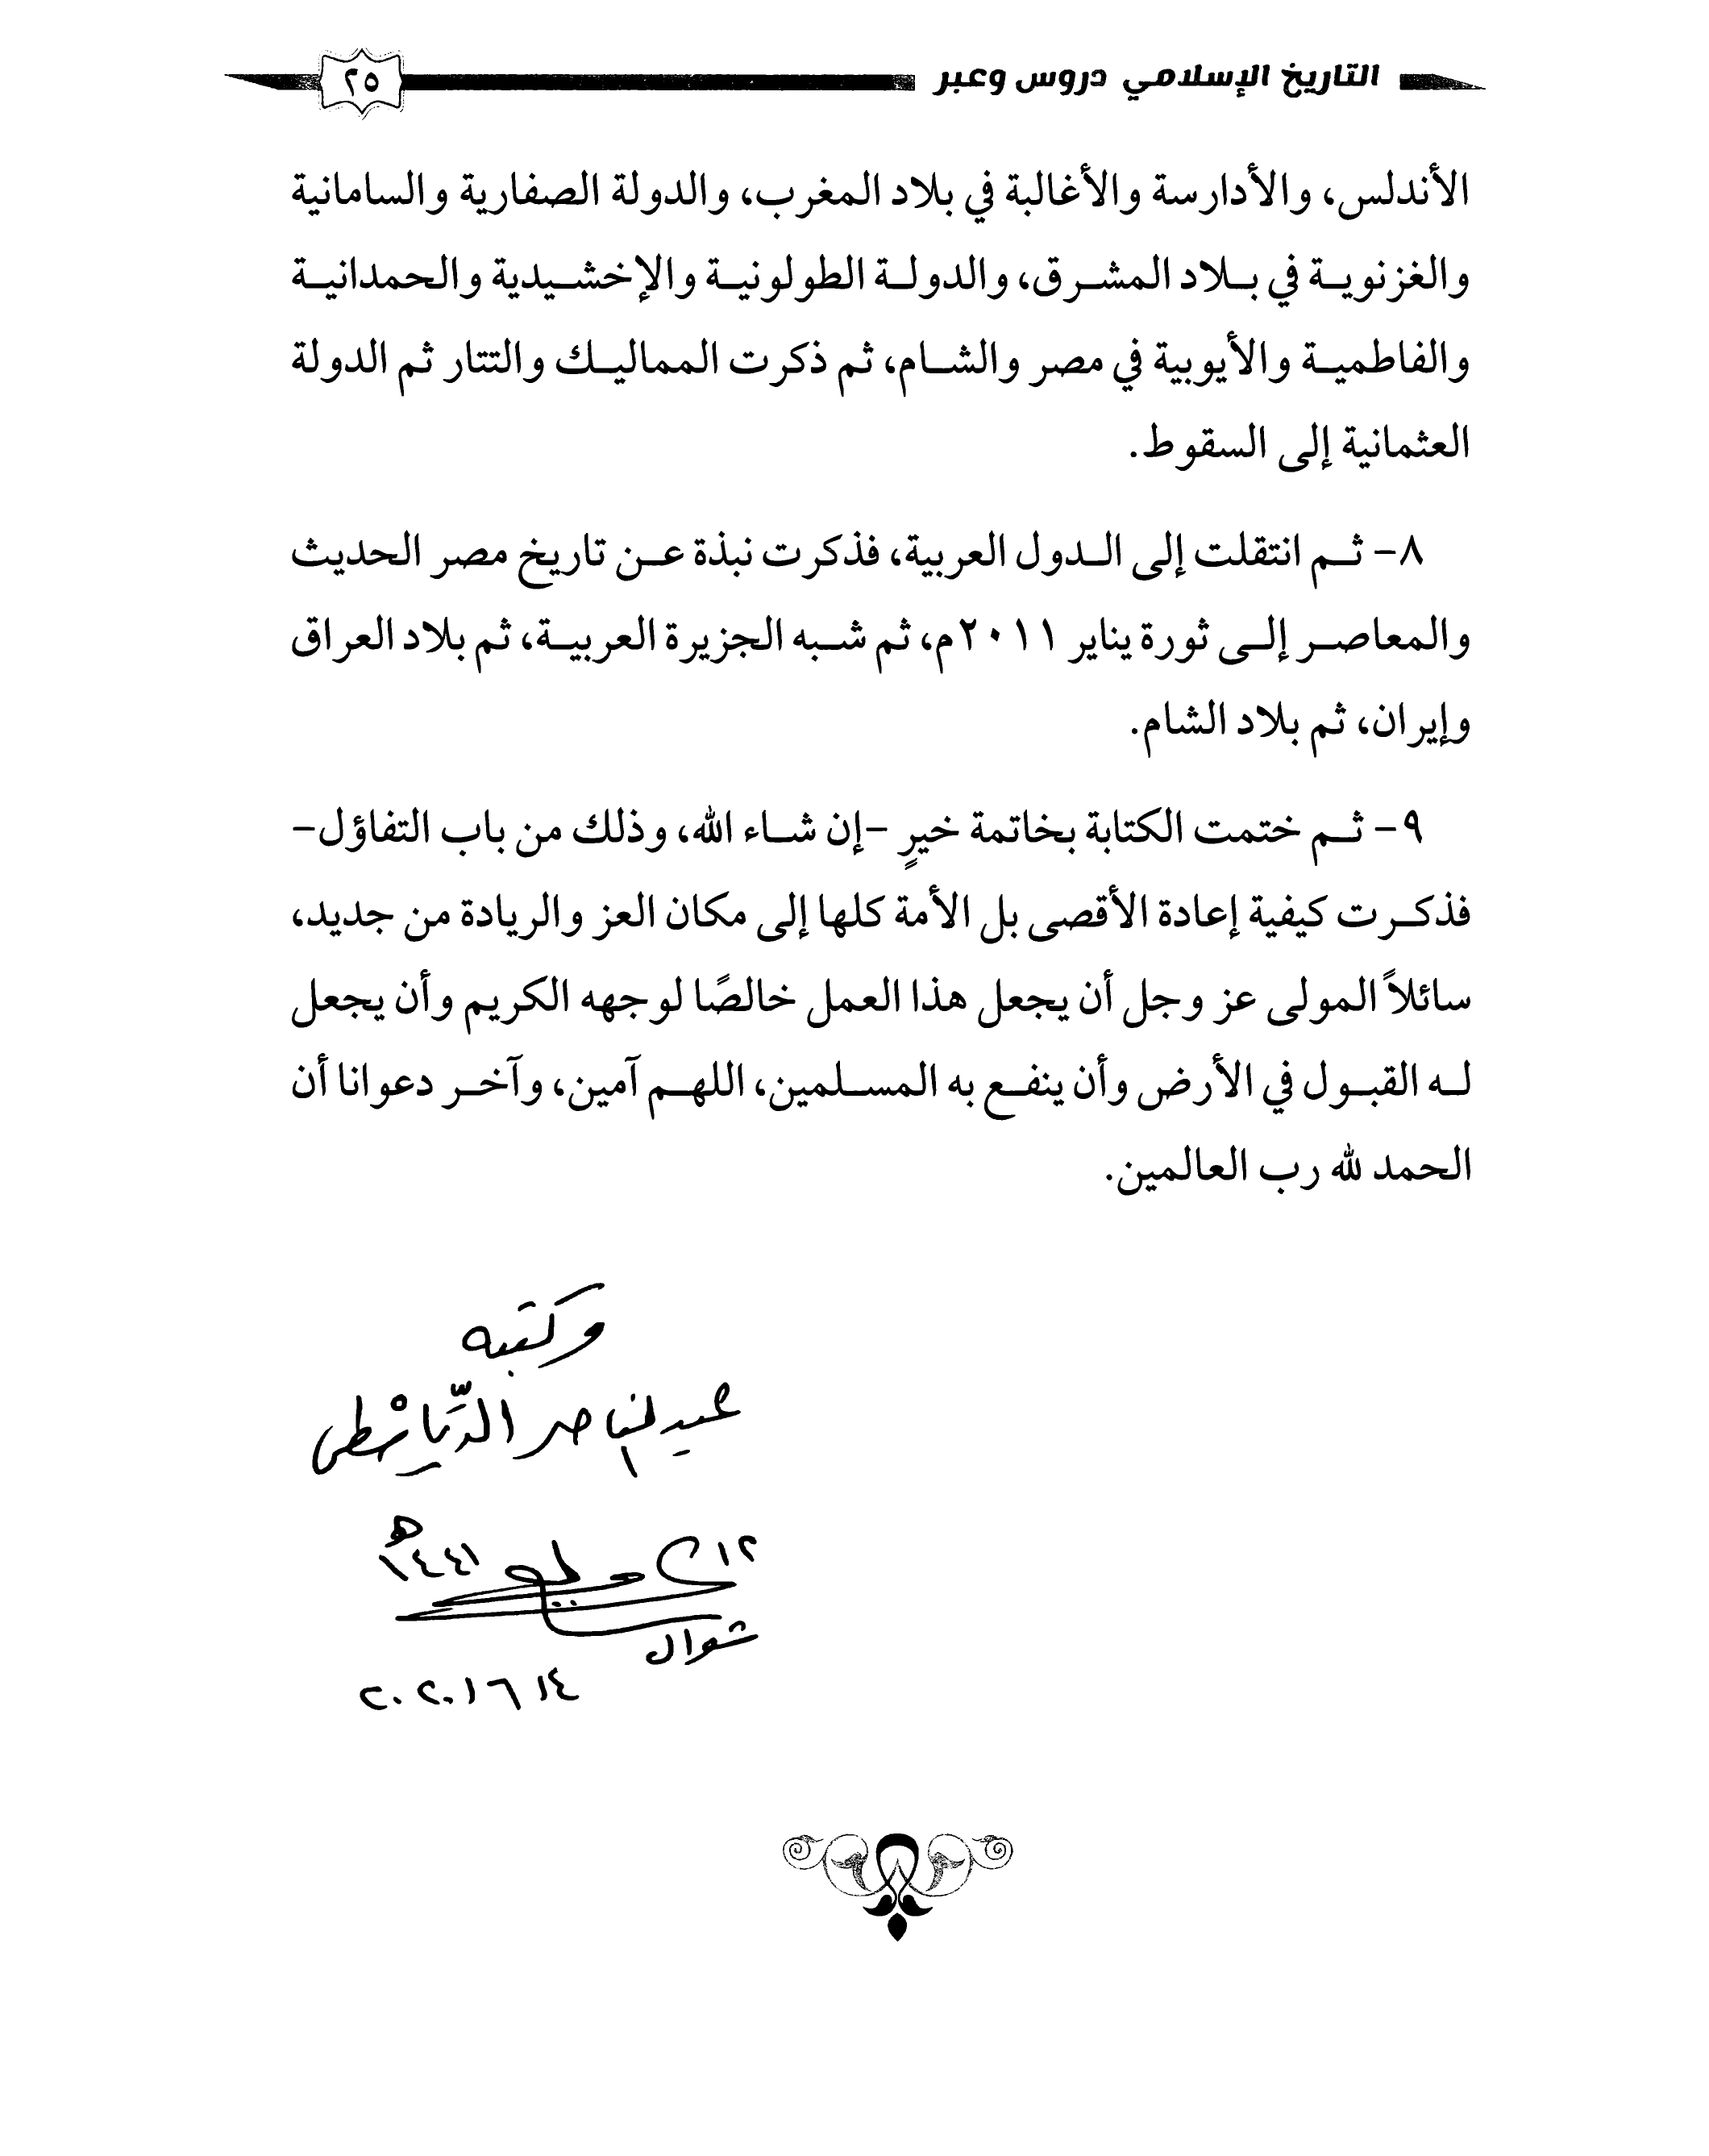 التاريخ الإسلامي دروس وعبر
٢٥
الأندلس، والأدارسة والأغالبة في بلاد المغرب، والدولة الصفارية والسامانية
والغزنوية في بلاد المشرق، والدولة الطولونية والإخشيدية والحمدانية
والفاطمية والأيوبية في مصر والشام، ثم ذكرت المماليك والتتار ثم الدولة
العثمانية إلى السقوط.
٨- ثم انتقلت إلى الدول العربية، فذكرت نبذة عن تاريخ مصر الحديث
والمعاصر إلى ثورة يناير ٢٠١١م، ثم شبه الجزيرة العربية، ثم بلاد العراق
وإيران، ثم بلاد الشام.
٩- ثم ختمت الكتابة بخاتمة خيرٍ -إن شاء الله، وذلك من باب التفاؤل-
فذكرت كيفية إعادة الأقصى بل الأمة كلها إلى مكان العز والريادة من جديد،
سائلاً المولى عز وجل أن يجعل هذا العمل خالصًا لوجهه الكريم وأن يجعل
له القبول في الأرض وأن ينفع به المسلمين، اللهم آمين، وآخر دعوانا أن
الحمد لله رب العالمين.
وكتبه
١٤٤١هـ
شوال